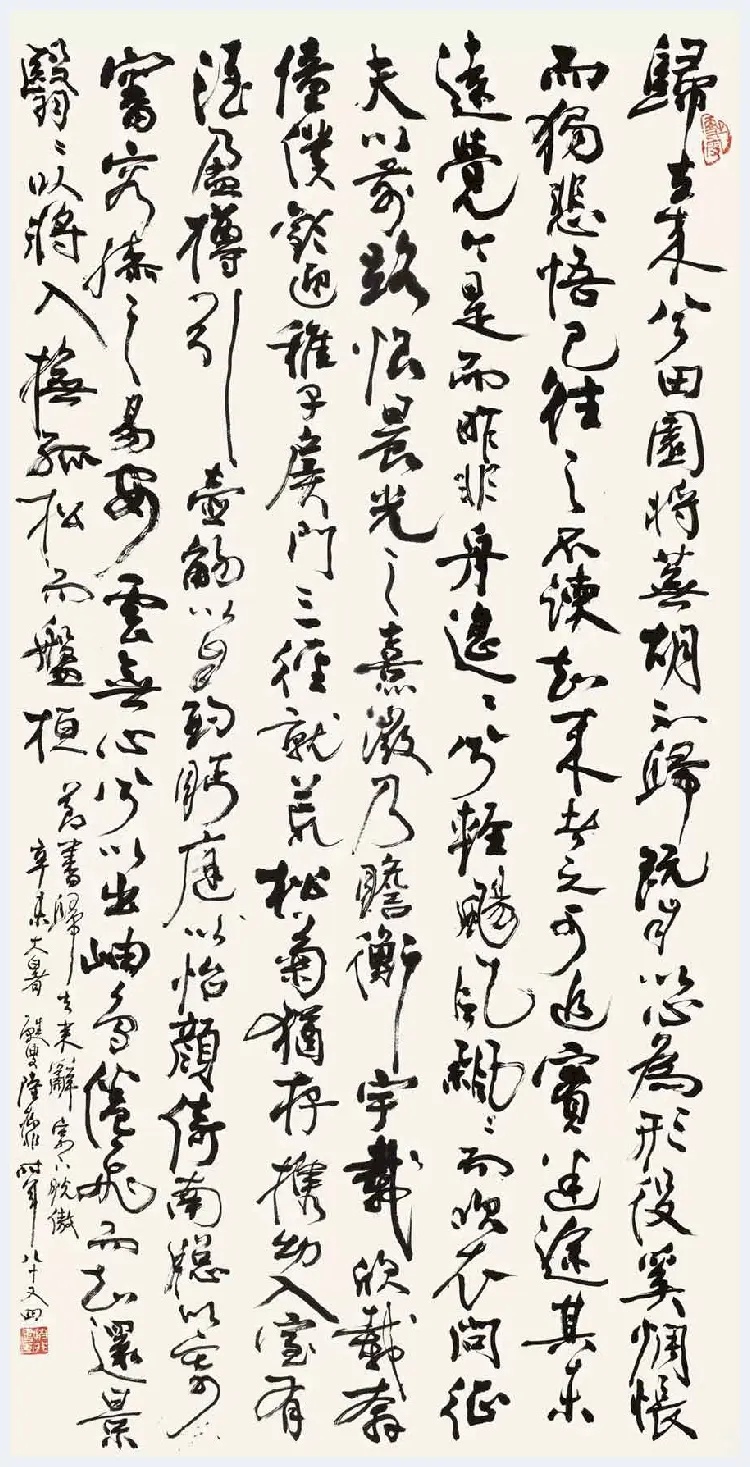 歸去来兮田園将蕪胡不歸既自以心為形役奚惆悵
而獨悲悟已往之不諫知来者之可追實迷途其未
遠覺今是而昨非舟遥〻兮輕颺風飄〻而吹衣問征
夫以前路恨晨光之熹微乃瞻衡宇載欣載奔
僮僕歡迎稚子候門三徑就荒松菊猶存攜幼入室有
酒盈樽引壺觴以自酌眄庭以怡顔倚南窗以寄
審容膝之易安雲無心兮以出岫鳥倦飛而知還景
翳〻以将入撫孤松而盤桓
節書歸去来辭 寄下脱傲
辛未大暑 陸儼少時年八十又四